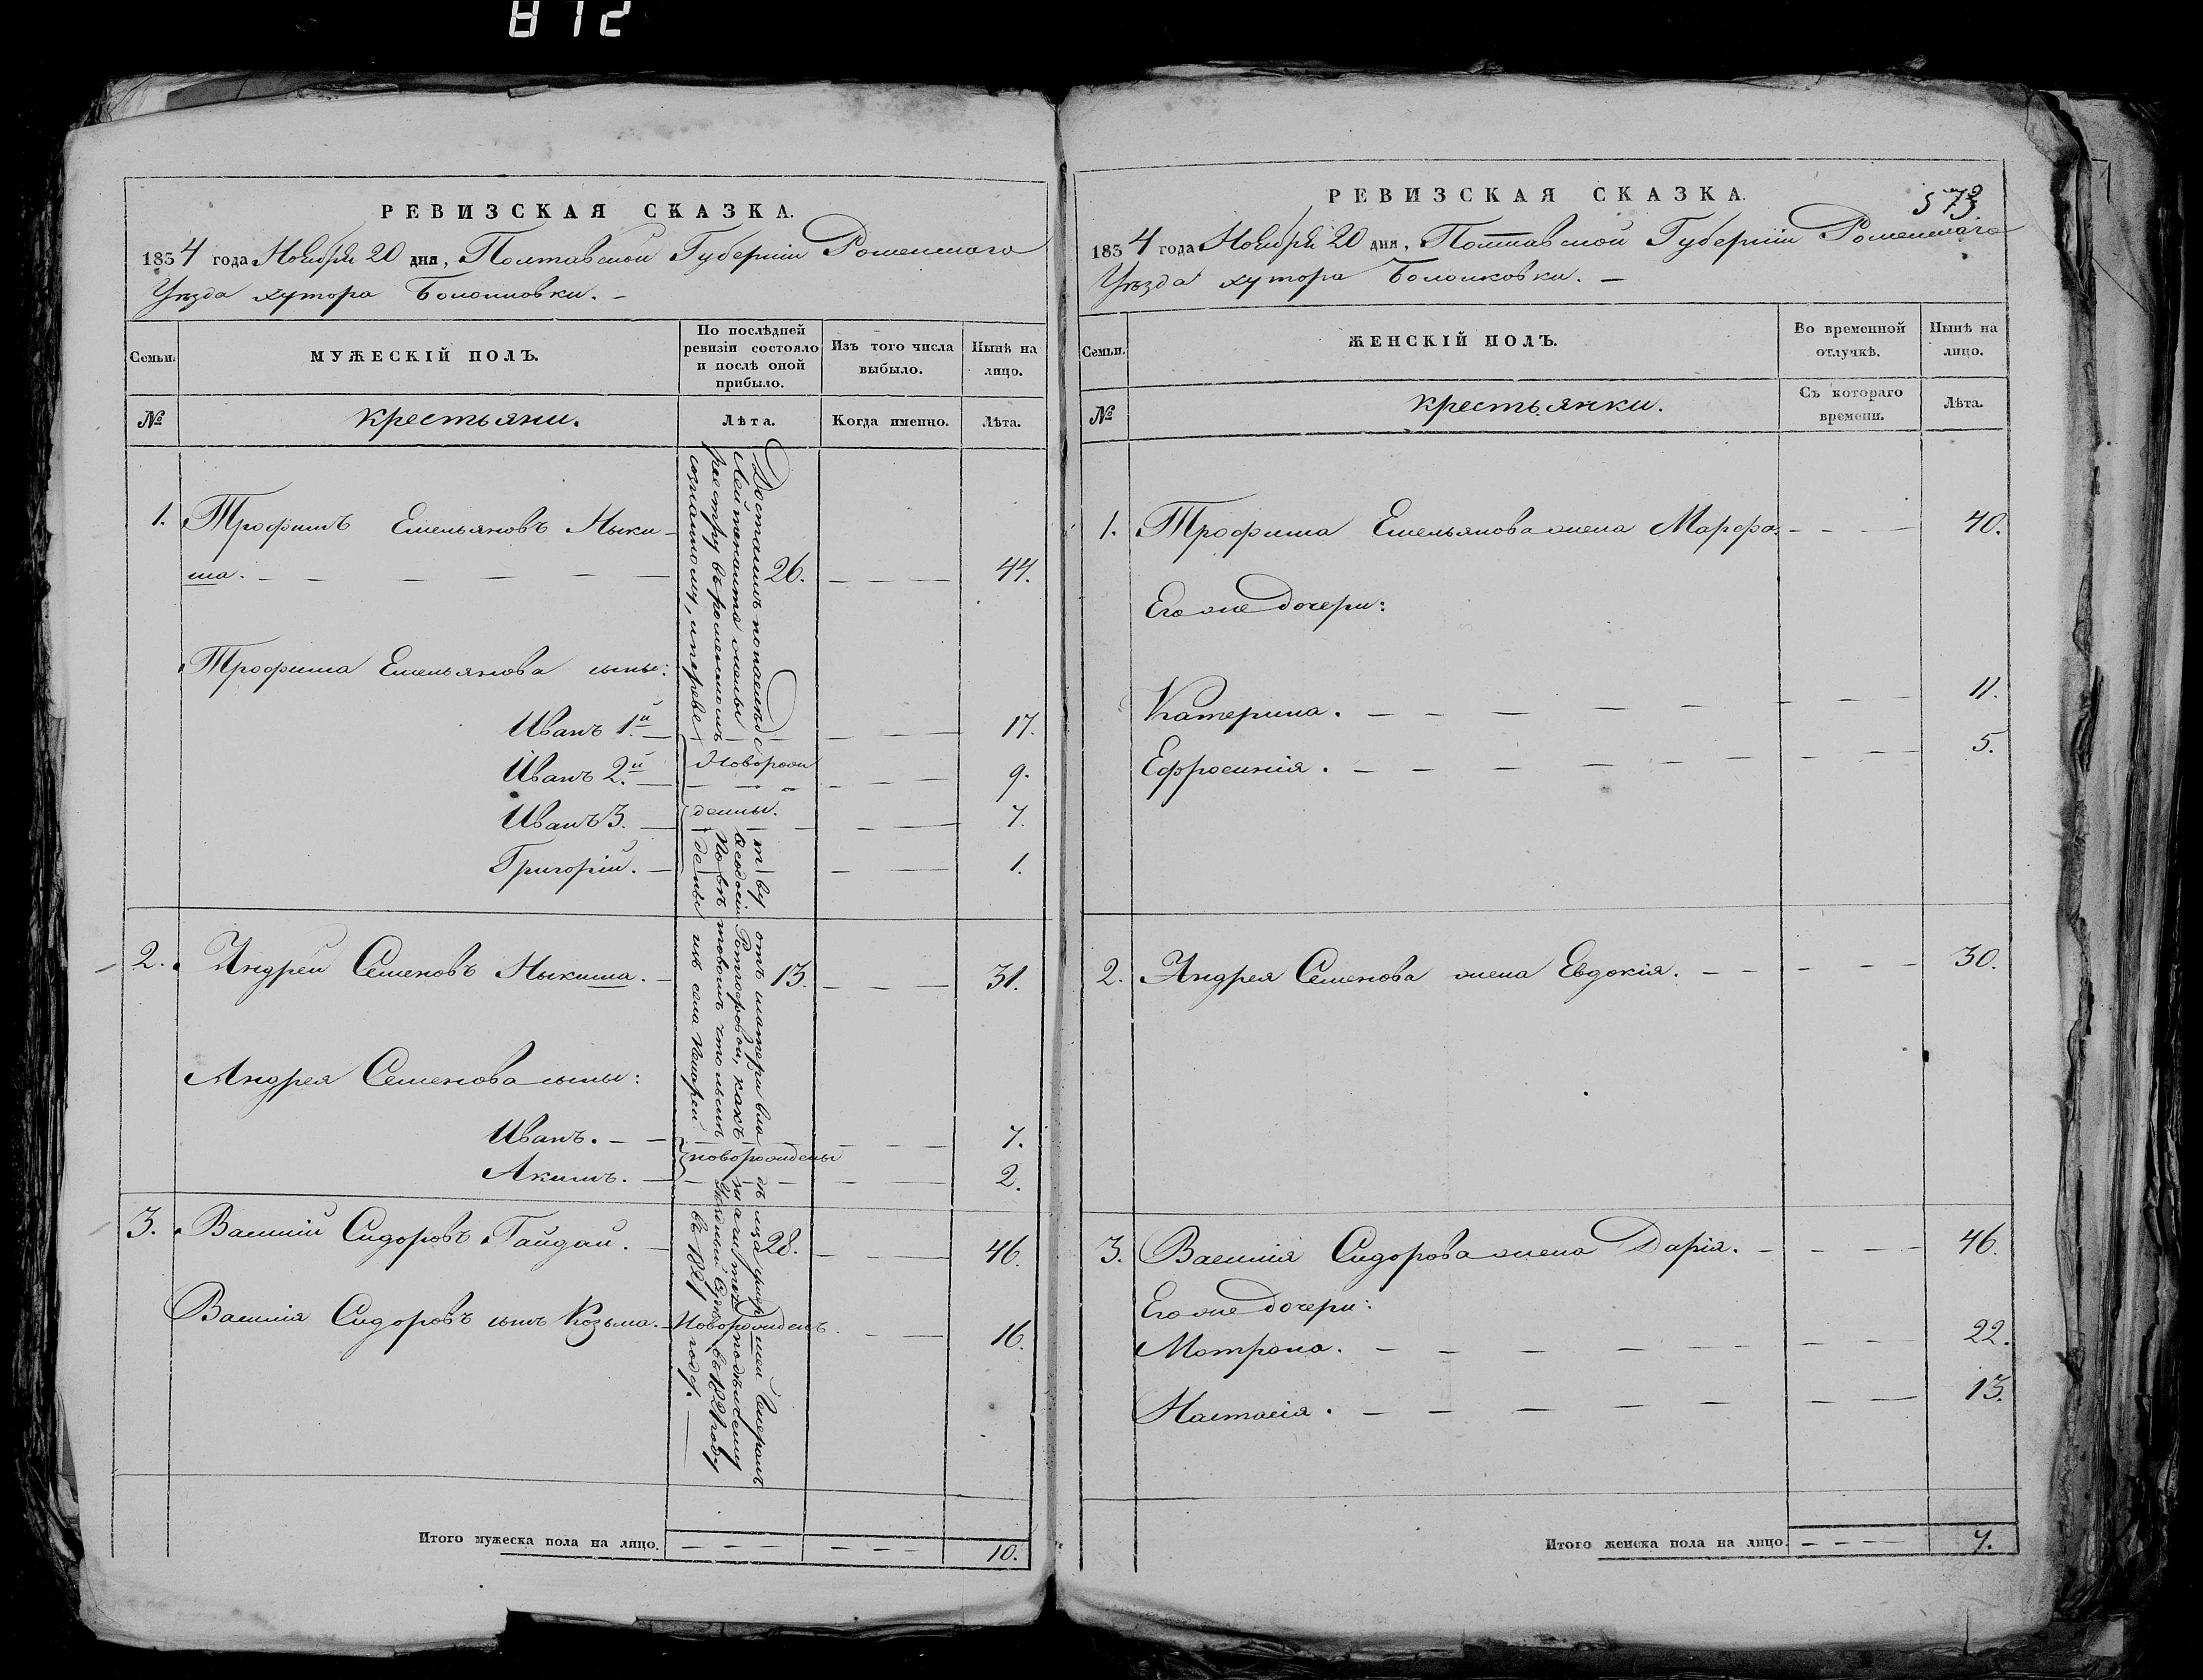 812
РЕВИЗСКАЯ СКАЗКА.
1834 года Ноября 20 дня, Полтавской Губерніи Роменскаго
Уезда хутора
Семьи.
МУЖЕСКІЙ ПОЛЪ.
По послѣдней ревизіи состояло и послѣ оной прибыло.
Изъ того числа выбыло.
Нынѣ на лицо.
№
крестьяни.
Лѣта.
Когда именно.
Лѣта.
1. Трофимъ Емельяновъ Ныки-
ша. 26. 44.
Трофима Емельянова сыны:
Иванъ 1й 17.
Иванъ 2.й Новорож 9.
Иванъ 3. денны. 7.
Григорій. 1.
2. Андрей Семеновъ Ныкиша. 13. 31.
Андрея Семенова сыны:
Иванъ. 7.
новорождены
Акимъ. 2.
3. Василій Сидоровъ Гайдай. 28. 46.
Василія Сидоровъ сынъ Козьма. Новорожденъ. 16.
Достались по
отъ матери
Лейтенанта
Феодосіи какъ
реэстру въ роменскомъ
Повѣтовомъ
Уѣздный Судъ въ 1821 году
сознанному, и переве
дены изъ села
въ 1821 году.
Итого мужеска пола на лицо. 10.
РЕВИЗСКАЯ СКАЗКА.
573
1834 года Ноября 20 дня, Полтавской Губерніи Роменскаго
Уезда хутора
Семьи.
ЖЕНСКІЙ ПОЛЪ.
Во временной отлучкѣ.
Нынѣ на лицо.
№
крестьянки.
Съ котораго времени.
Лѣта.
1. Трофима Емельянова жена Марфа. 40.
Его же дочери:
Катерина. 11.
Ефросинія. 5.
2. Андрея Семенова жена Евдокія. 30.
3. Василія Сидорова жена Дарія. 46.
Его же дочери:
Мотрона. 22.
Настасія. 13.
Итого женска пола на лицо. 7.